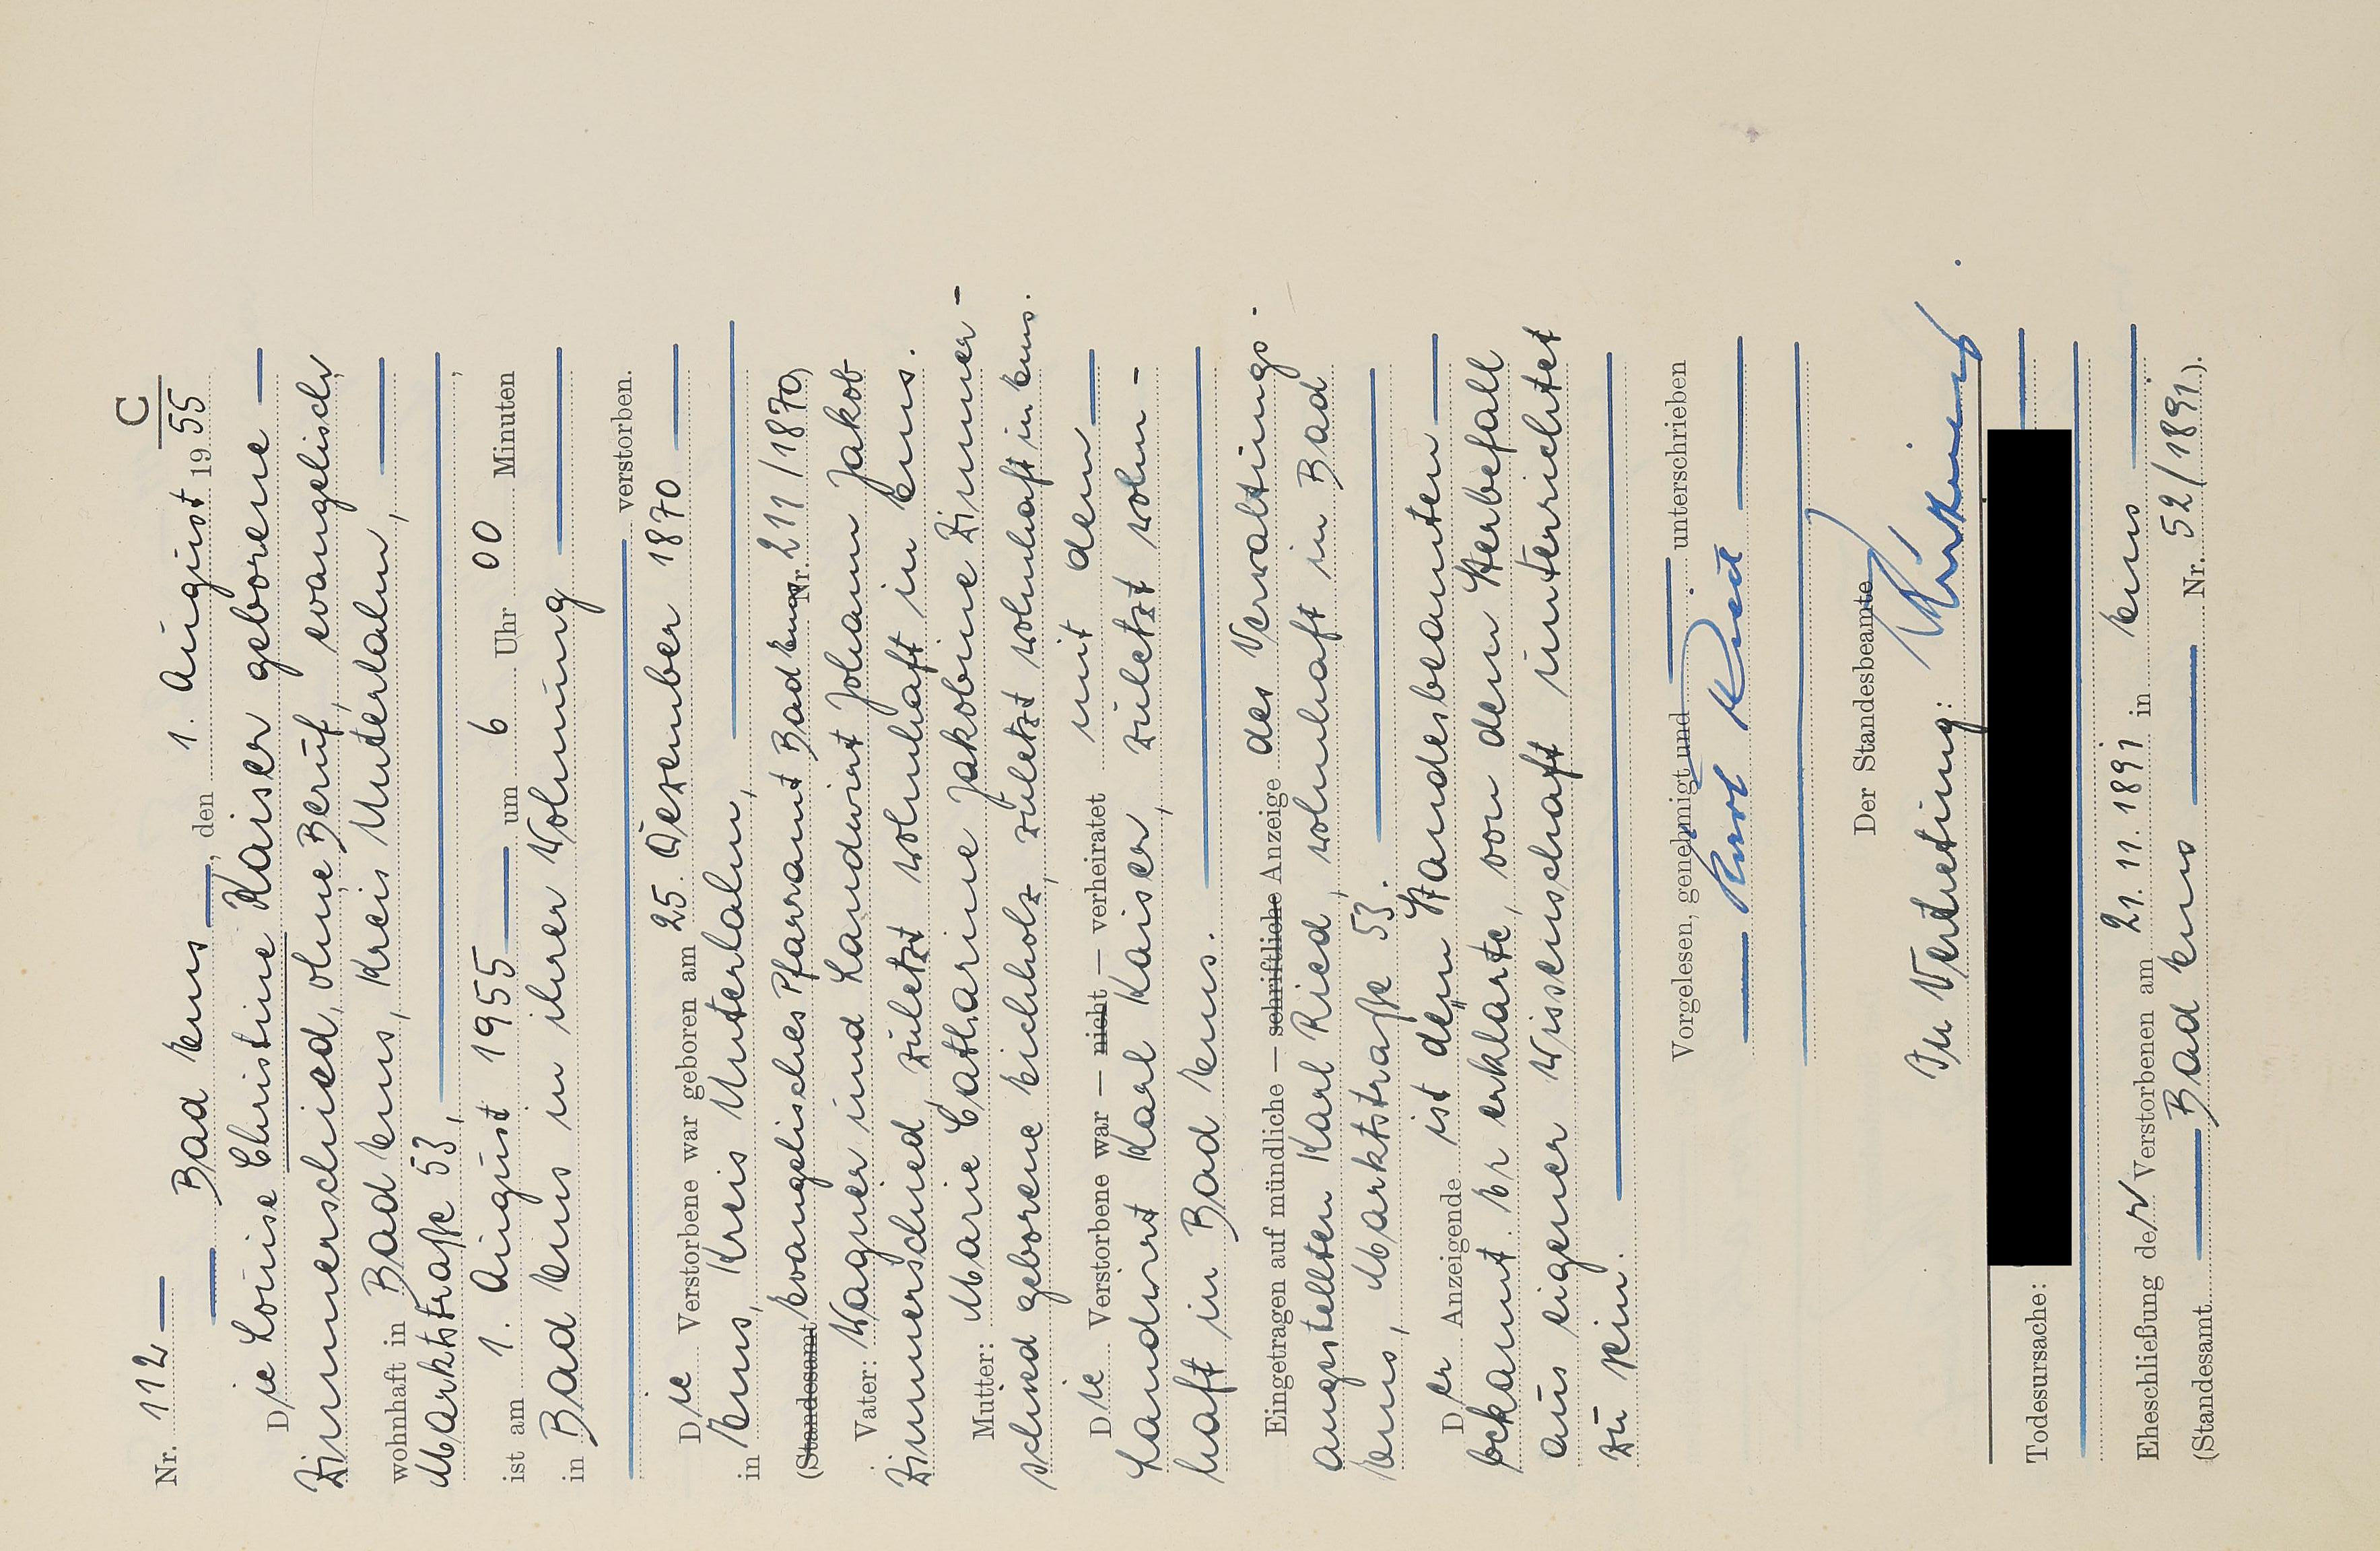 C
Nr. 112
Bad Ems, den 1. August 1955
Die Louise Christine Kaiser geborene
Zimmerschied, ohne Beruf, evangelisch,
wohnhaft in Bad Ems, Kreis Unterlahn,
Marktstraße 53,
ist am 1. August 1955 um 6 Uhr 00 Minuten
in Bad Ems in ihrer Wohnung
verstorben.
Die Verstorbene war geboren am 25. Dezember 1870
in Ems, Kreis Unterlahn,
(Standesamt Evangelisches Pfarramt Bad Ems Nr. 211/1870)
Vater: Wagner und Landwirt Johann Jakob
Zimmerschied, zuletzt wohnhaft in Ems.
Mutter: Marie Catharine Jakobine Zimmer-
schied geborene Eichholz, zuletzt wohnhaft in Ems.
Die Verstorbene war — nicht — verheiratet mit dem
Landwirt Karl Kaiser, zuletzt wohn-
haft in Bad Ems.
Eingetragen auf mündliche — schriftliche Anzeige des Verwaltungs-
angestellten Karl Ried, wohnhaft in Bad
Ems, Marktstraße 53.
Der Anzeigende ist dem Standesbeamten
bekannt. Er erklärte, von dem Sterbefall
aus eigener Wissenschaft unterrichtet
zu sein.
Vorgelesen, genehmigt und unterschrieben
Karl Ried
Der Standesbeamte
In Vertretung:
Todesursache:
Eheschließung der Verstorbenen am 21.11.1891 in Ems
(Standesamt Bad Ems Nr. 52/1891).